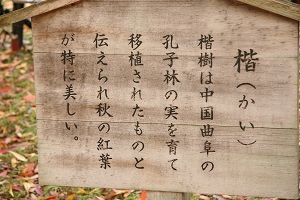 楷(かい)
楷樹は中国曲阜の
孔子林の実を育て
移植されたものと
伝えられ秋の紅葉
が特に美しい。